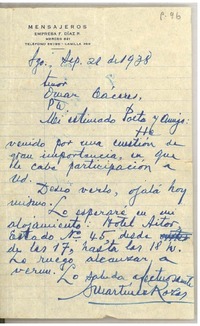 P. 96
MENSAJEROS
EMPRESA F. DIAZ R.
MERCED 841
Sgo., Sep. 28 de 1938
Señor
Omar Cáceres.
Pte.
Mi estimado Poeta y amigo:
He
venido por una cuestión de
gran importancia, en que
le cabe participación a
Ud.
Deseo verlo, ojalá hoy
mismo.
Lo esperaré en mi
alojamiento: Hotel Aitor,
Estado No 45, desde
las 17, hasta las 18 h.
Le ruego alcanzar a
verme.
Lo saluda afectuosamente
Martínez Rozas